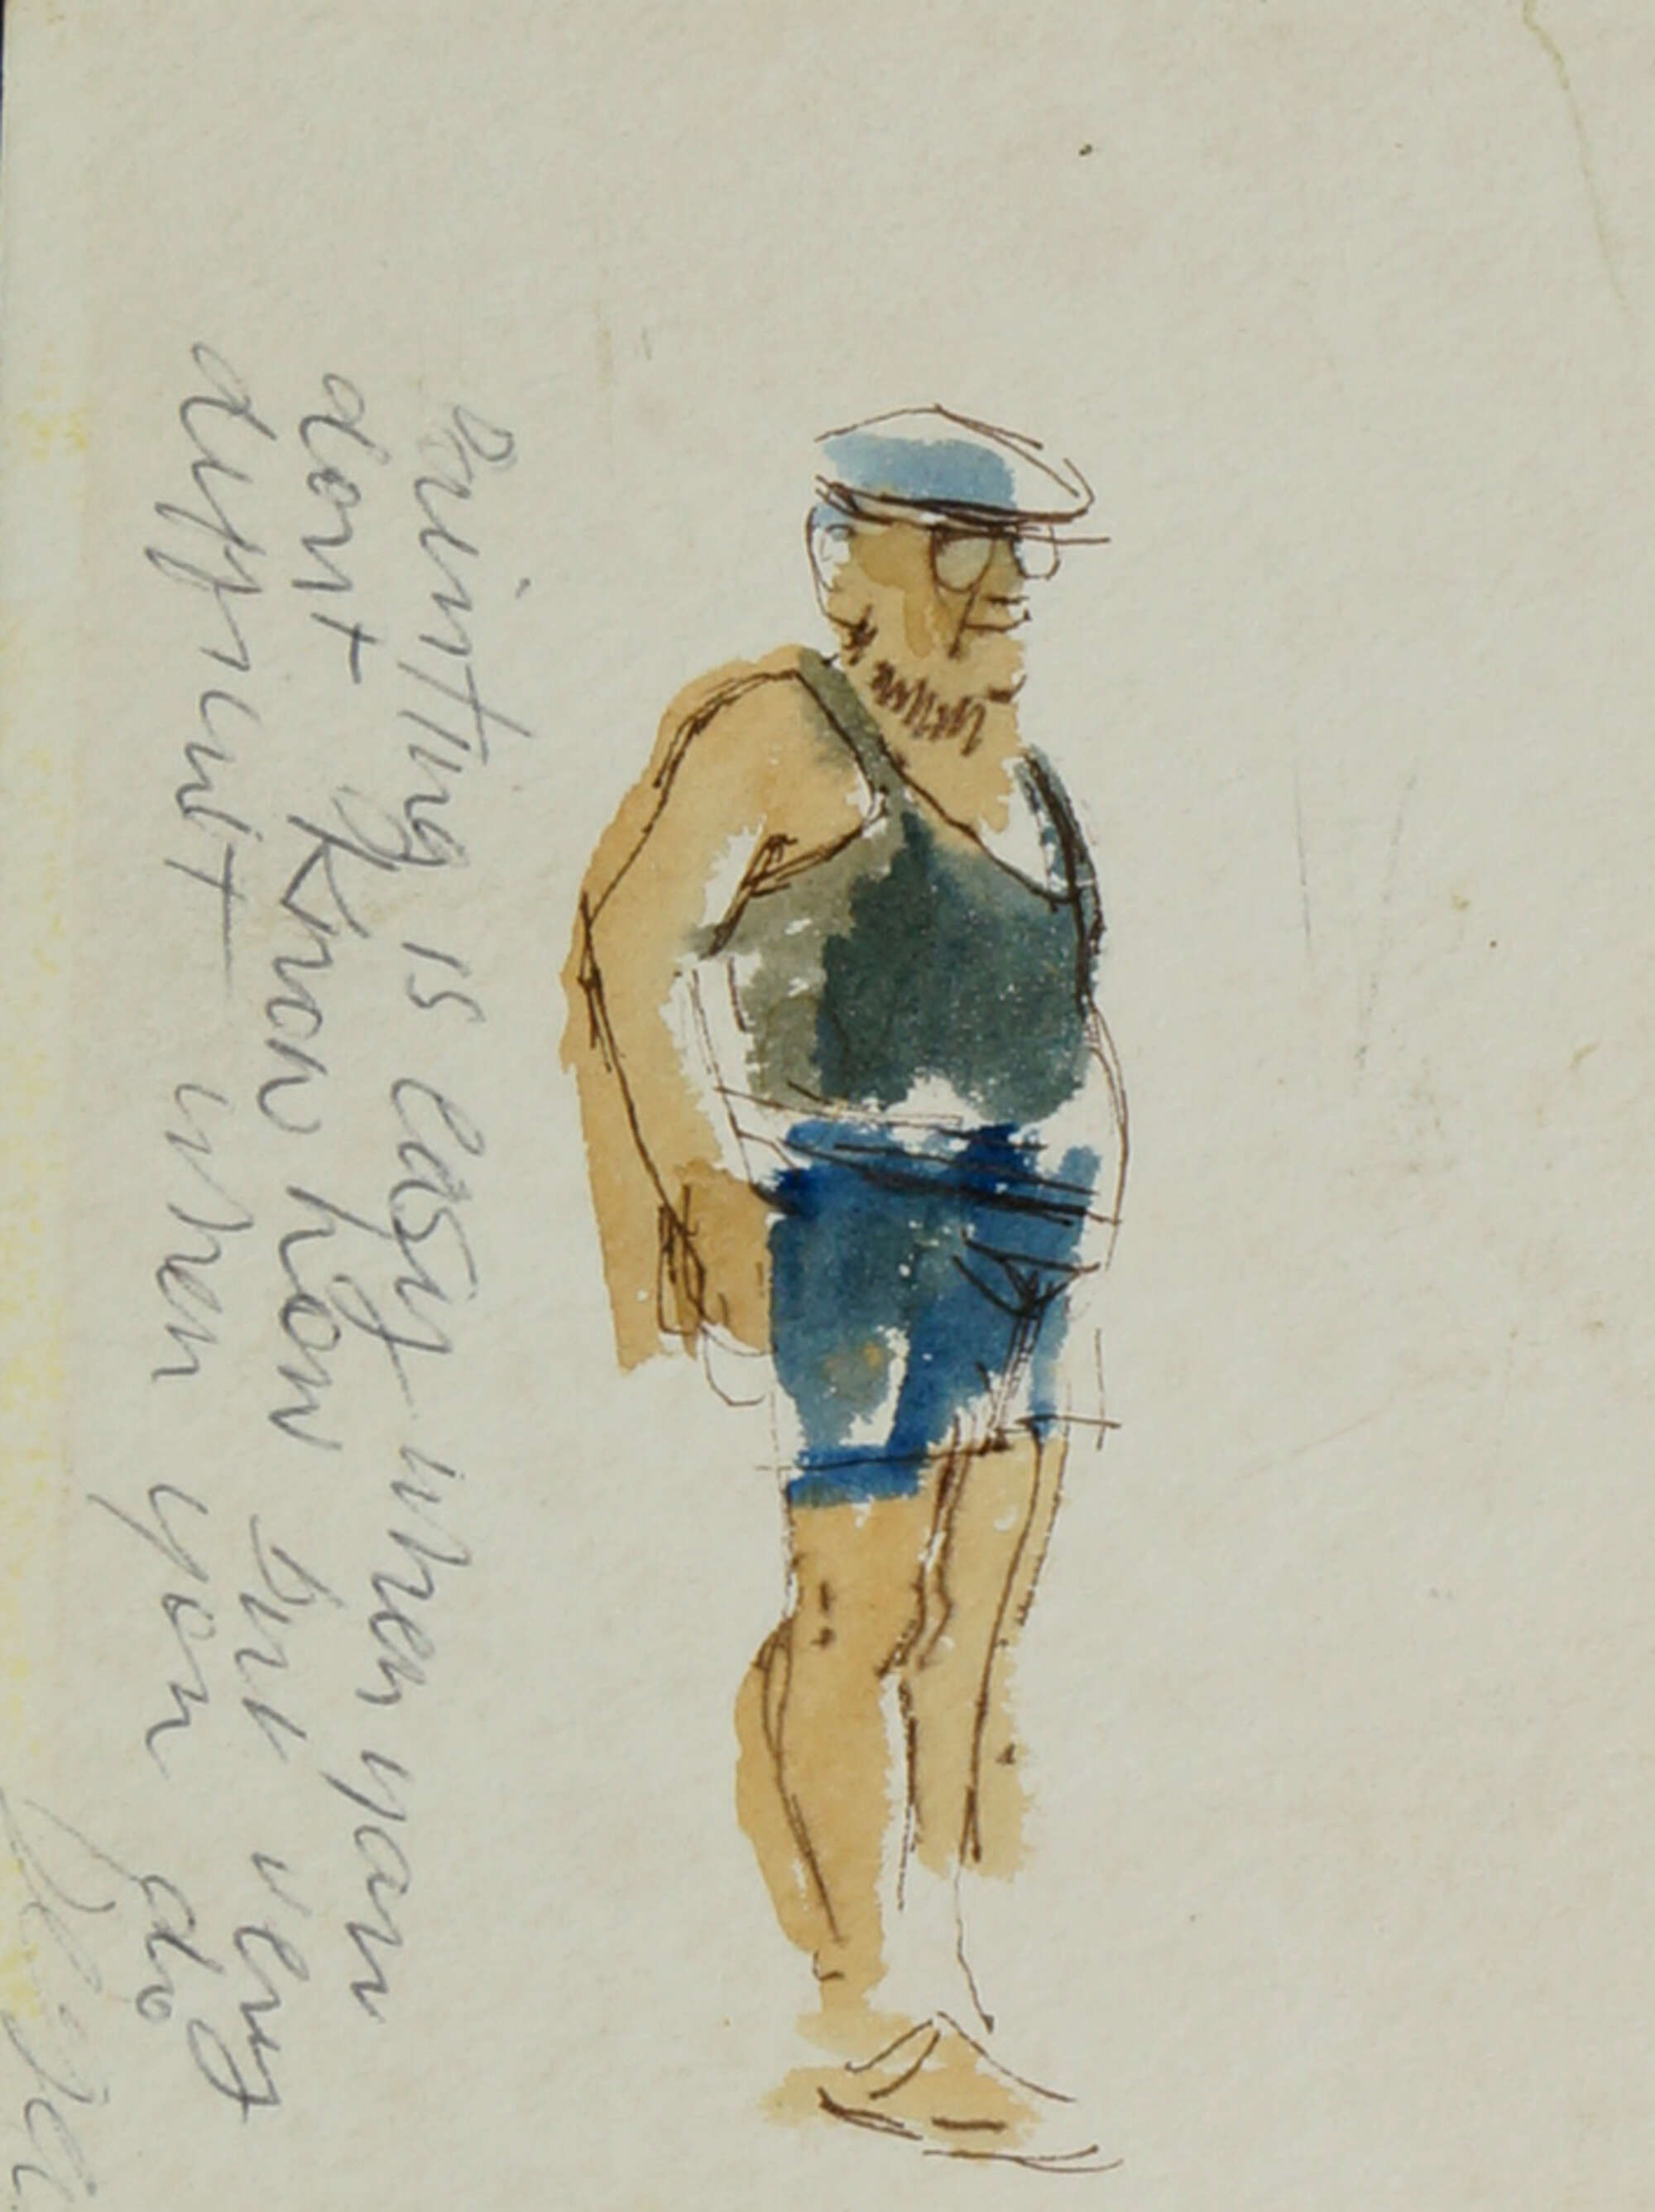 Painting is easy when you
dont Know how but very
difficult when you do